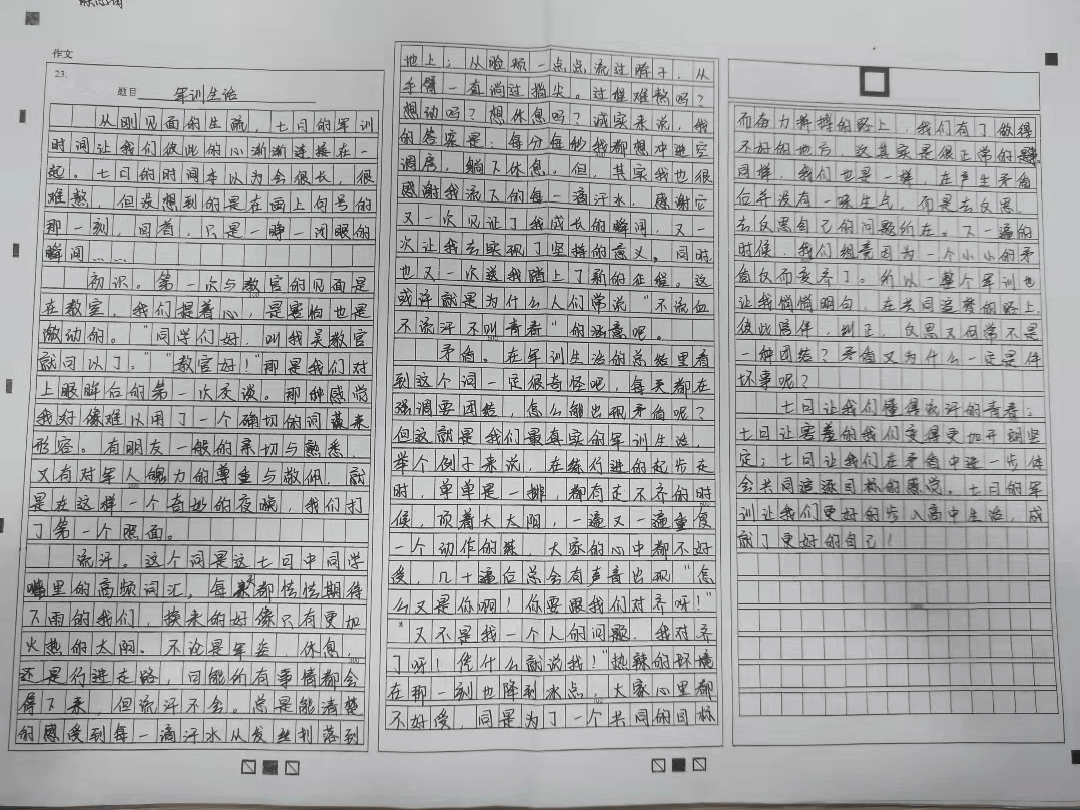 作文
23.
题目 军训生活
从刚见面的生疏，七日的军训
时间让我们彼此的心渐渐连接在一
起。七日的时间本以为会很长，很
难熬，但没想到的是在画上句号的
那一刻，回首，只是一睁一闭眼的
瞬间……
初识。第一次与教官的见面是
在教室，我们提着心，是害怕也是
激动的。“同学们好，叫我吴教官
就可以了。”“教官好！”那是我们对
上眼眸后的第一次交谈。那种感觉
我好像难以用了一个确切的词藻来
形容。有朋友一般的亲切与熟悉，
又有对军人能力的尊重与敬佩，就
是在这样一个奇妙的夜晚，我们打
了第一个照面。
流汗。这个词是这七日中同学
嘴里的高频词汇，每天都怯怯期待
下雨的我们，换来的好像只有更加
火热的太阳。不论是军姿，休息，
还是行进走路，可能所有事情都会
停下来，但流汗不会。总是能清楚
的感受到每一滴汗水从发丝划落到
地上；从脸颊一点点流过脖子，从
手臂一直淌过指尖。过程难熬吗？
想动吗？想休息吗？诚实来说，我
的答案是：每分每秒我都想冲进空
调房，躺下休息。但，其实我也很
感谢我流下的每一滴汗水，感谢它
又一次见证了我成长的瞬间，又一
次让我去实现了坚持的意义。同时
也又一次送我踏上了新的征程。这
或许就是为什么人们常说“不流血
不流汗不叫青春”的涵意吧。
矛盾。在军训生活的总结里看
到这个词一定很奇怪吧，每天都在
强调要团结，怎么能出现矛盾呢？
但这就是我们最真实的军训生活，
举个例子来说，在练行进的起步走
时，单单是一排，都有走不齐的时
候，顶着大太阳，一遍又一遍重复
一个动作的练，大家的心中都不好
受，几十遍后总会有声音出现“怎
么又是你啊！你要跟我们对齐呀！”
“又不是我一个人的问题，我对齐
了呀！凭什么就说我！”热辣的环境
在那一刻也降到冰点，大家心里都
不好受，同是为了一个共同的目标
而奋力拼搏的路上，我们有了做得
不好的地方，这其实是很正常的事，
同样，我们也是一样，在产生矛盾
后并没有一味生气，而是去反思，
去反思自己的问题所在。下一遍的
时候，我们组竟因为一个小小的矛
盾反而变齐了。所以一整个军训也
让我悄悄明白，在共同追梦的路上，
彼此陪伴，纠正，反思又何尝不是
一种团结？矛盾又为什么一定是件
坏事呢？
七日让我们懂得流汗的青春；
七日让害羞的我们变得更加开朗坚
定；七日让我们在矛盾中进一步体
会共同追逐目标的感觉。七日的军
训让我们更好的步入高中生活，成
就了更好的自己！